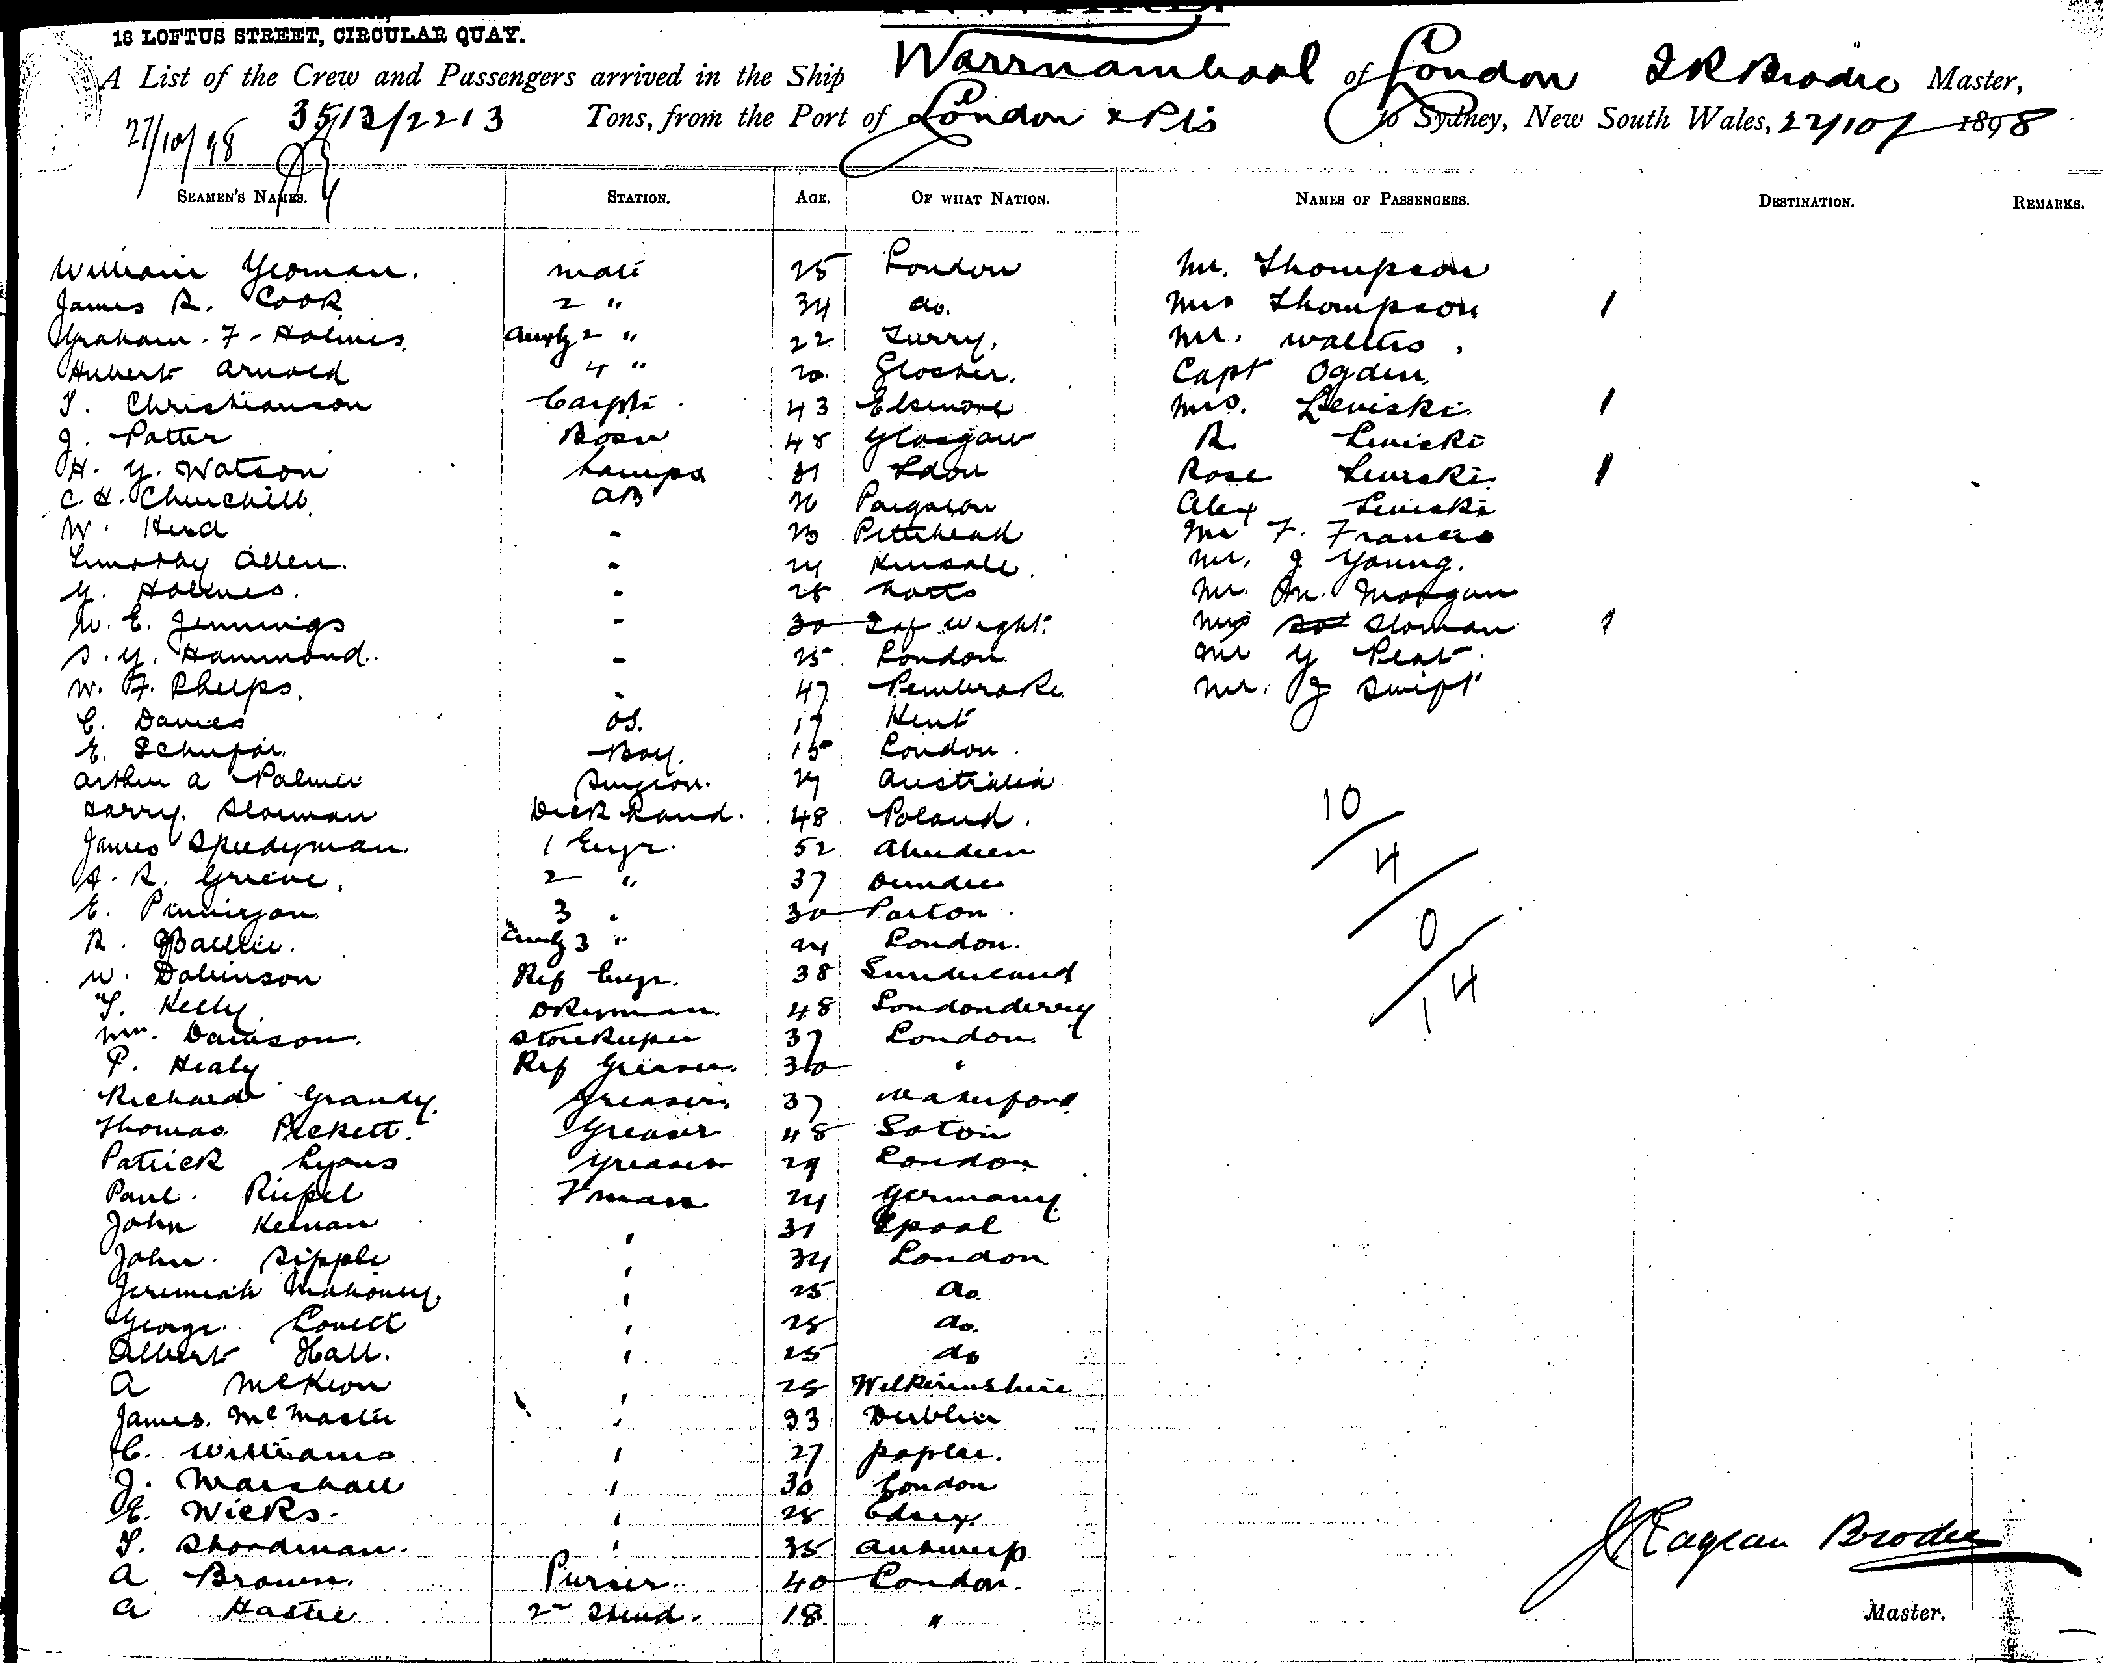 18 LOFTUS STREET, CIRCULAR QUAY.
A List of the Crew and Passengers arrived in the Ship Warrnambool of London J R Brodie Master,
3513/2213 Tons, from the Port of London & Pts to Sydney, New South Wales, 22/10/ 1898
27/10/98
SEAMEN'S NAMES. STATION. AGE. OF WHAT NATION. NAMES OF PASSENGERS. DESTINATION. REMARKS.
William Yeoman. mate 25 London Mr. Thompson
James R. Cook 2 " 34 do. Mrs Thompson 1
Graham. F. Holmes 2 " 22 Surry. Mr. Walters.
Hubert Arnold 4 " 20 Gloster. Capt Ogden.
T. Christianson Carptr. 43 Elsinore Mrs. Leviski 1
J. Patter Bosn 48 Glasgow R. Leviski
H. G. Watson Lamps 31 Ldon Rose Leviski 1
C H. Churchill. AB 26 Alex Leviski
W. Hird - Mr F. Francis
Timothy Allen. - 24 Kinsale. Mr. J Young.
G. Holmes. - 28 Mr. M. Morgan
W. E. Jennings - 30 I of Wight. Mrs Sloman 1
S. G. Hammond. - 25 London Mr G Peat.
W. F. Phelps. - 47 Pembroke Mr. J Swift
C. Davies OS. 17 Kent
E. Boy. 15 London.
Arthur A Palmer Surgeon. 27 Australia
Harry. Sloman Deck Hand. 48 Poland.
James Speedyman 1 Engr. 52 Aberdeen
A. R. Grieve. 2 " 37 Dundee
E. 3 " 30 Parton.
R. Baillie. 3 " 24 London.
W. Dobinson Ref Engr. 38 Sunderland
T. Kelly Dkeyman 48 Londonderry
Wm. Davison. Storekeeper 37 London.
P. Healy Ref Greaser. 30 "
Richard Grandy. Greaser. 37 Waterford
Thomas Pickett. Greaser 48 Soton
Patrick Lyons Greaser 29 London
Paul. Riepel F'man 24 Germany
John Keenan " 31 Lpool
John. Sipple " 34 London
Jeremiah Mahoney " 25 do.
George. Lovett " 28 do.
Albert Hall. " 25 do
A McKeon " 28
James. McMaster " 33 Dublin
C. Williams " 27 Poplar.
J. Marshall " 30 London
E. Wicks. " 28
T. Shordman. " 35 Antwerp
A Brown. Purser. 40 London.
A Hastie 2nd Stewd. 18 "
10
4
0
14
J Eagean Brodie
Master.